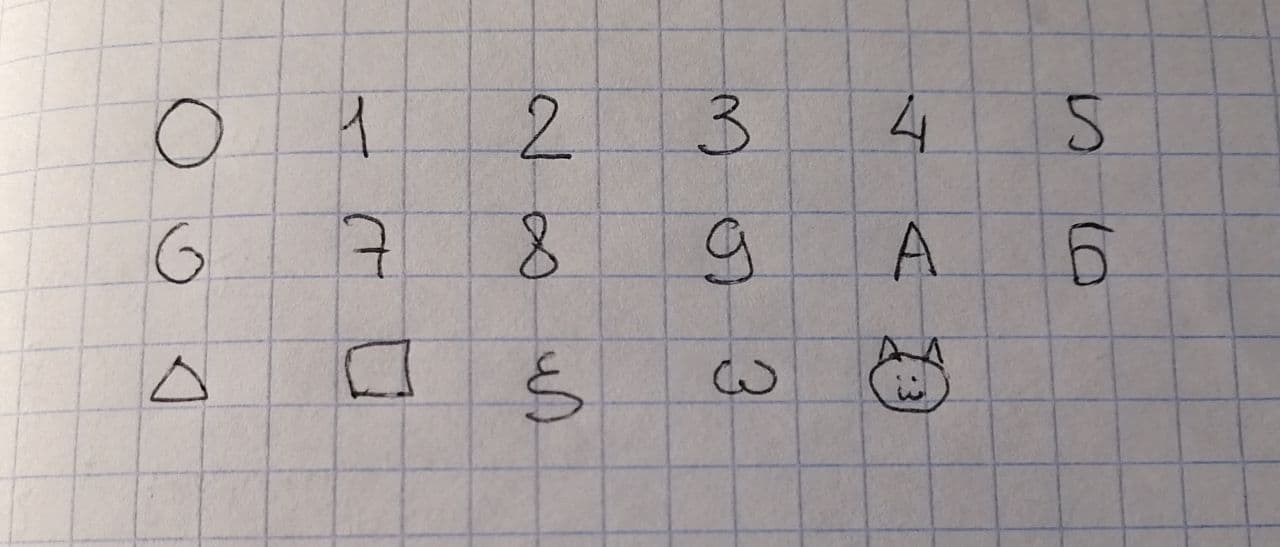 0 1 2 3 4 5
6 7 8 9 A Б
△ □ ξ ω